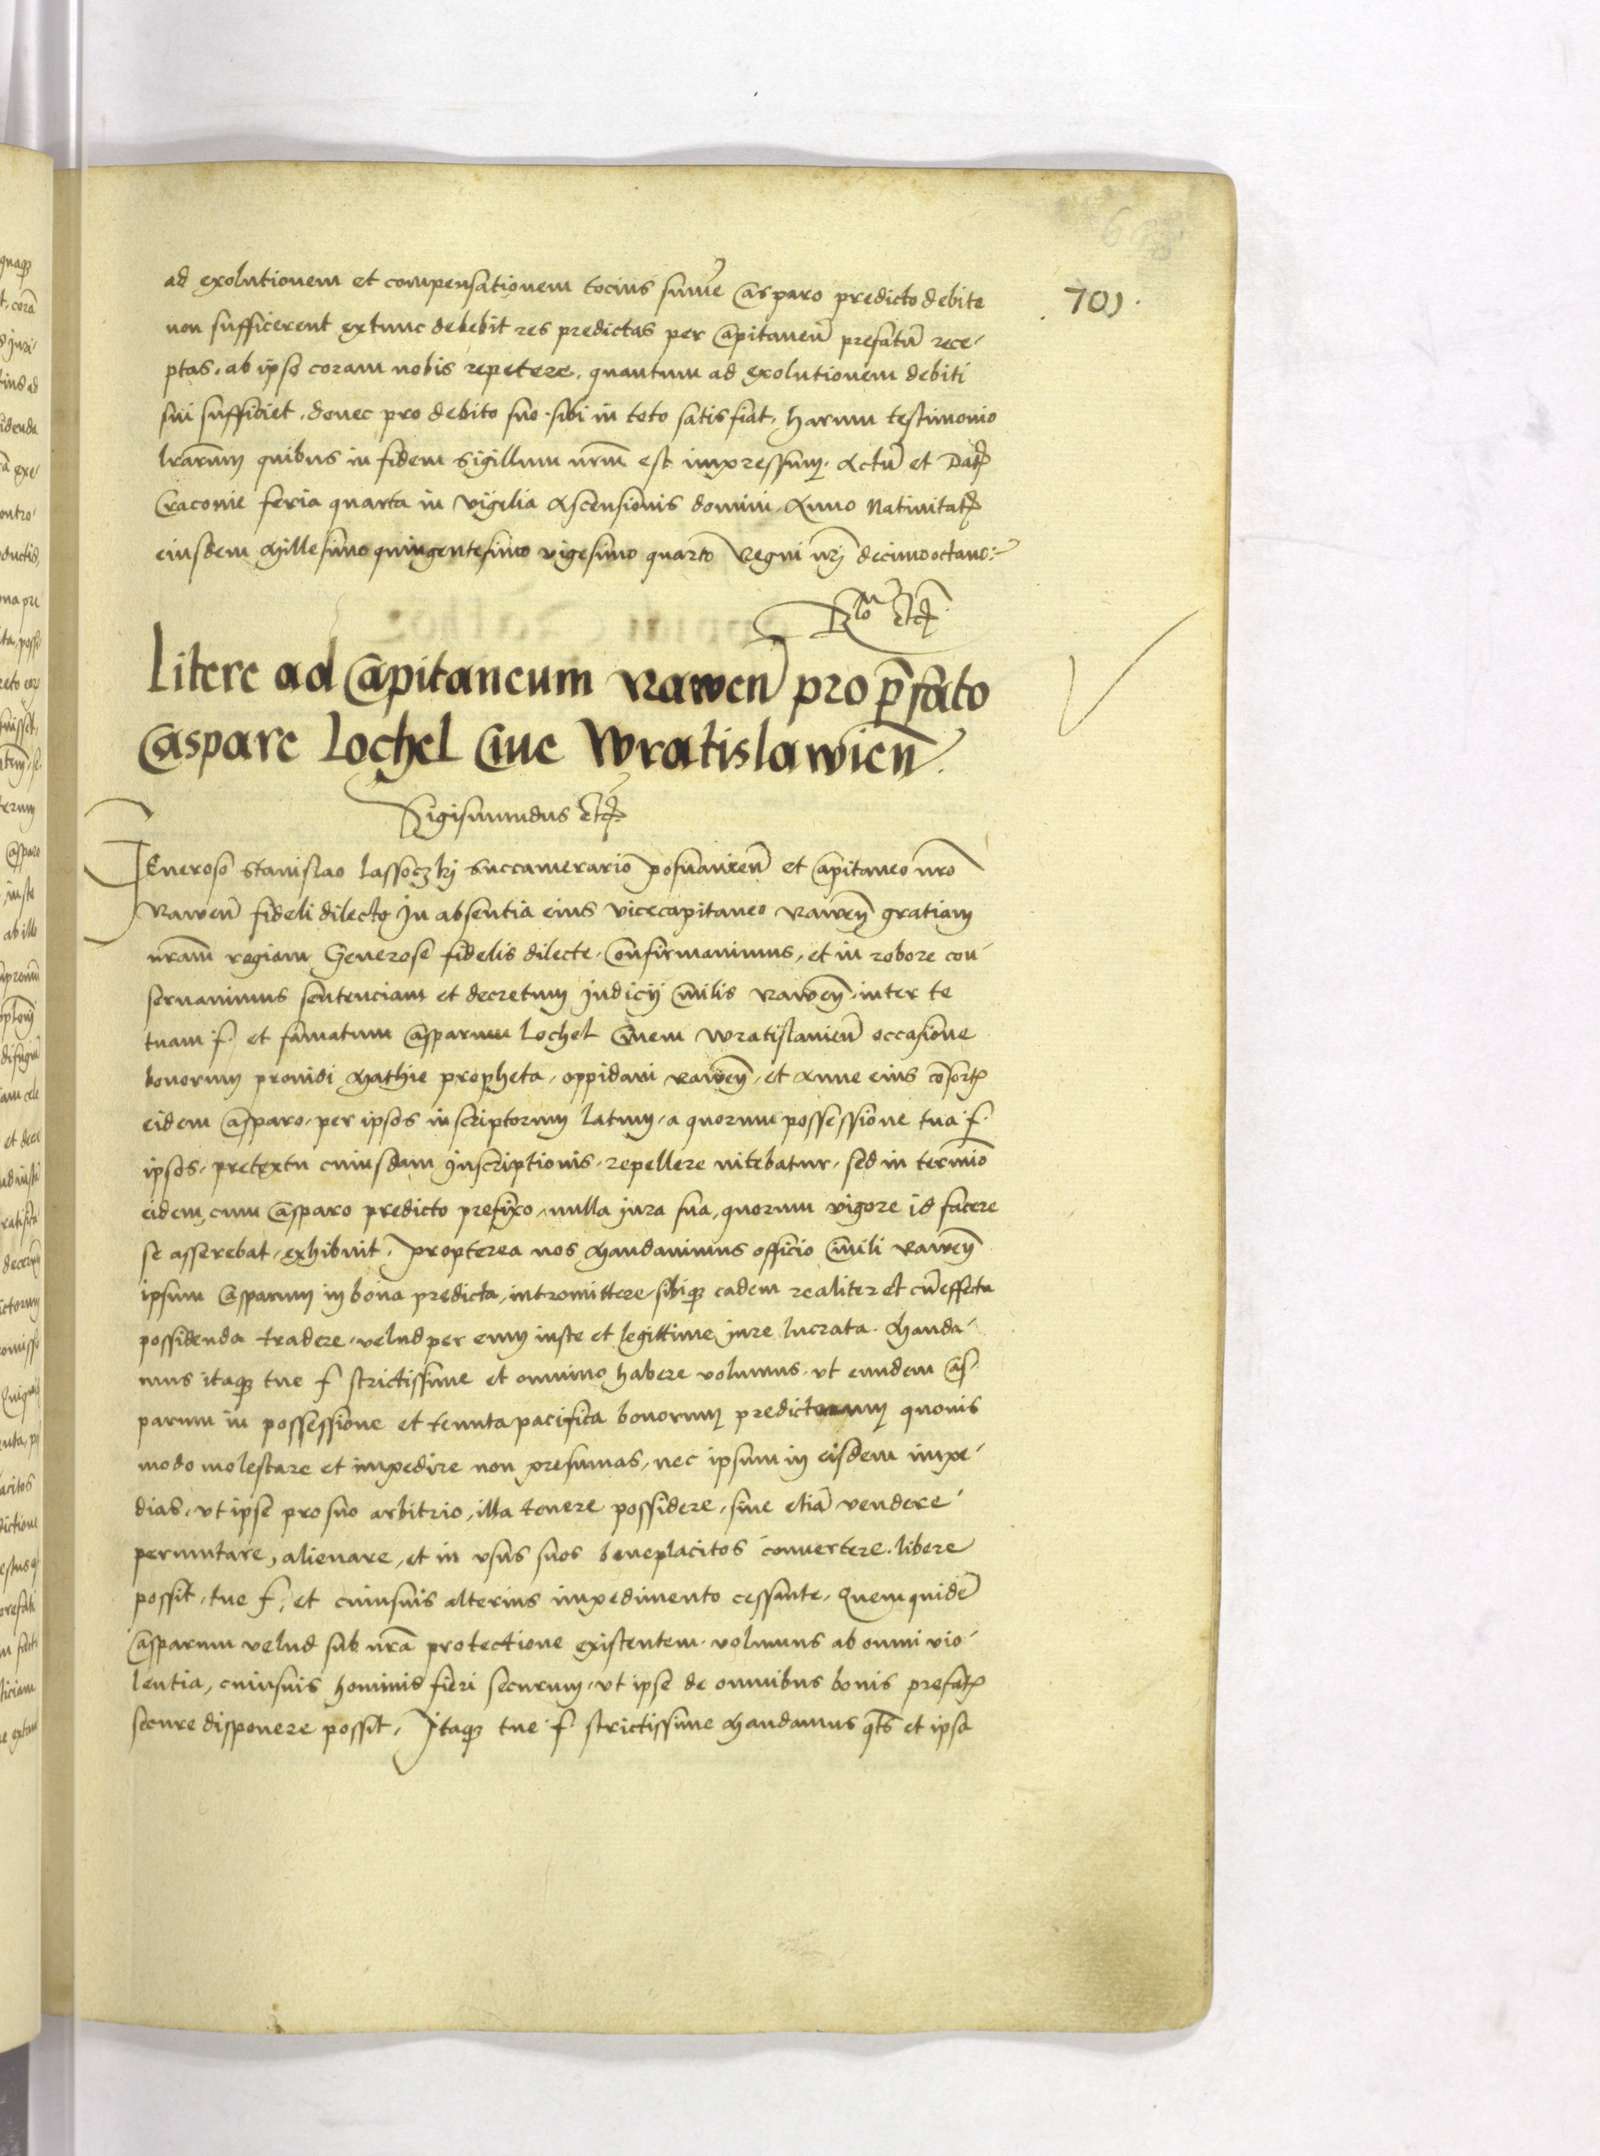 701.
ad exolutionem et compensationem tocius sum̄e Casparo predicto debite
non sufficerent extunc debebit res predictas per Capitaneū prefatū rece-
ptas, ab ipso coram nobis repetere, quantum ad exolutionem debiti
sui sufficiet, donec pro debito suo sibi in toto satisfiat, harum testimonio
lrārum quibus in fidem sigillum nrm̄ est impressum. Actū et Datꝭ
Cracovie feria quarta in vigilia Ascensionis domini, Anno Nativitatꝭ
eiusdem Millesimo quingentesimo vigesimo quarto Regni nrj̄ decimooctavo.
Rlo etcꝭ
Litere ad Capitaneum Rawen̄ pro p̄fato
Caspare Lochel Cive Wratislawien̄.
Sigismundus etcꝭ
Generoso Stanislao Lassoczkj Succamerario Posnanien̄ et Capitaneo nrō
Rawen̄ fideli dilecto Jn absentia eius vicecapitaneo Rawen̄ gratiam
nrām regiam Generose fidelis dilecte, Confirmavimus, et in robore con-
servavimus sententiam et decretum judicij Civilis Rawen̄, inter te
tuam f. et famatum Casparum Lochel Civem Wratislavien̄ occasione
bonorum providi Mathie propheta, oppidani Rawen̄, et Anne eius cōsortꝭ
eidem Casparo, per ipsos inscriptorum latum, a quorum possessione tua f.
ipsos, pretextu cuiusdam Jnscriptionis, repellere nitebatur, sed in termīo
eidem cum Casparo predicto prefixo, nulla jura sua, quorum vigore id facere
se asserebat, exhibuit, propterea nos Mandavimus officio Civili Rawen̄
ipsum Casparum in bona predicta, intromittere, sibiqꝫ eadem realiter et cū effectu
possidenda tradere, velud per eum iuste et legittime jure lucrata. Manda-
mus itaqꝫ tue f. strictissime et omnino habere volumus, ut eundem Cas-
parum in possessione et tenuta pacifica bonorum predictorum quovis
modo molestare et impedire non presumas, nec ipsum in eisdem impe-
dias, ut ipse pro suo arbitrio, illa tenere possidere, sive etiā vendere
permutare, alienare, et in usus suos beneplacitos convertere, libere
possit, tue f. et cuiusvis alterius impedimento cessante, Quemquidē
Casparum velud sub nrā protectione existentem, volumus ab omni vio-
lentia, cuiusvis hominis fieri securum, ut ipse de omnibus bonis prefatꝭ
secure disponere possit, Jtaqꝫ tue f. strictissime Mandamus qts̄ et ipsa